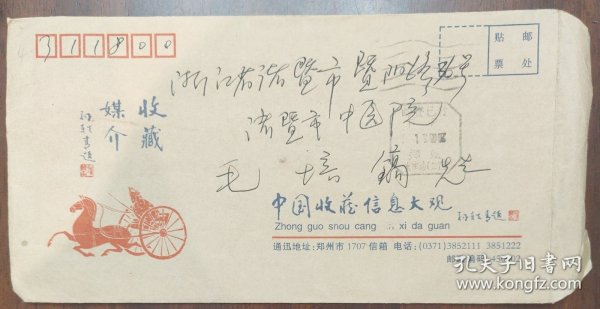 311800
贴 邮
票 处
浙江省诸暨市暨阳路
诸暨市中医院
毛培镐先生
收藏
媒介
中国收藏信息大观
Zhong guo shou cang xi da guan
通迅地址:郑州市1707信箱 电话:(0371)3852111 3851222
邮政编码
孔夫子旧书网
www.kongfz.com